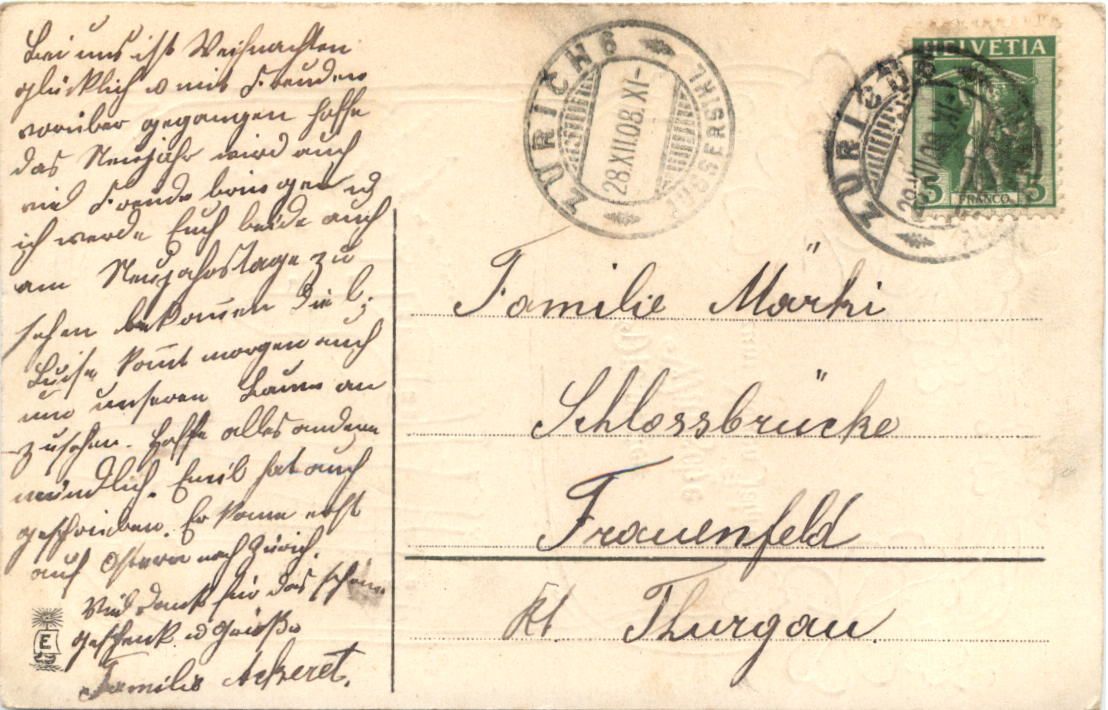 Bei uns ist Weihnachten
glücklich u mit Freuden
vorüber gegangen hoffe
das Neujahr wird auch
viel Freude bringen u
ich werde Euch beide auch
am Neujahrstage zu
sehen bekom̄en die
Luise kom̄t morgen auch
um unseren Baum an
zusehen. Hoffe alles andere
mündlich. Emil hat auch
geschrieben. Er kome erst
auf Ostern nach Zürich.
Viel Dank für das schöne
geschenk u Grüße
Familie Ackeret.
E
ZÜRICH 6
28.XII.08.XI-
AUSSERSIHL
HELVETIA
5 5
FRANCO
ZÜRICH
Familie Märki
Schlossbrücke
Frauenfeld
Kt. Thurgau.